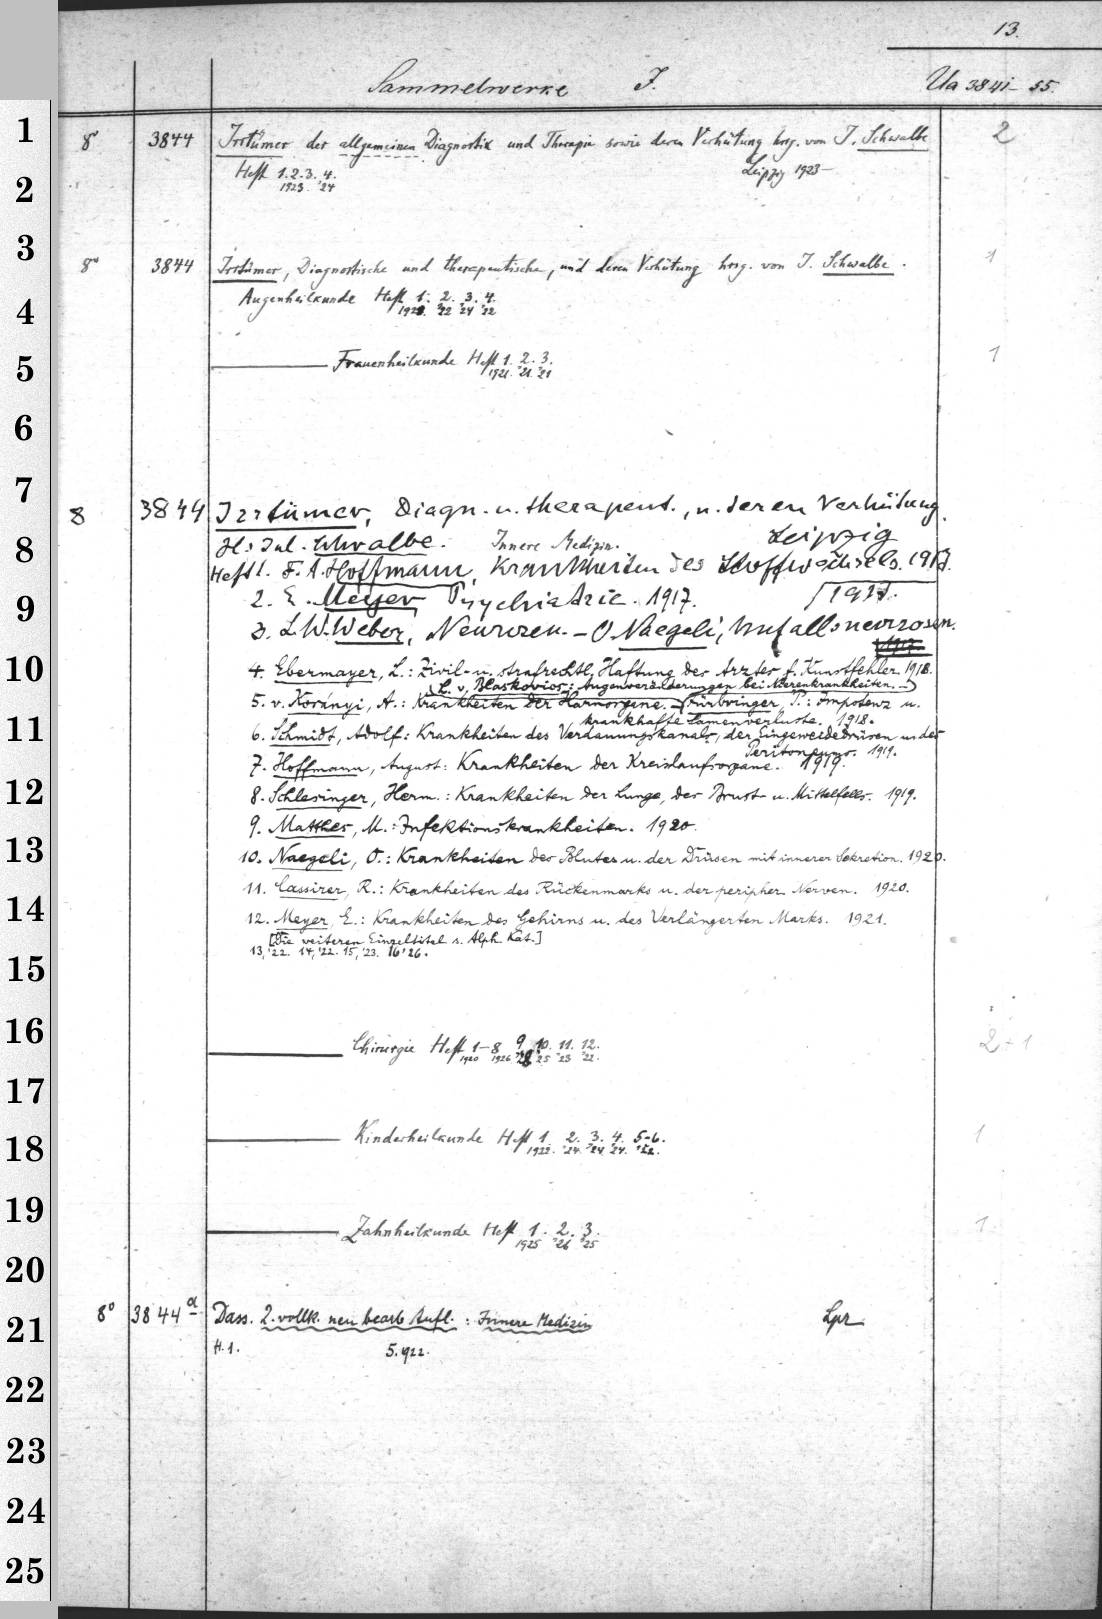 13.
Sammelwerke I. Ua 3841-55.
1 8° 3844 Irrtümer der allgemeinen Diagnostik und Therapie sowie deren Verhütung hrsg. von J. Schwalbe 2
2 Heft 1. 2. 3. 4. Leipzig 1923-
1923. '24
3 8° 3844 Irrtümer, Diagnostische und therapeutische, und deren Verhütung hrsg. von J. Schwalbe. 1
4 Augenheilkunde Heft 1. 2. 3. 4.
'22 '24 '22
5 Frauenheilkunde Heft 1. 2. 3. 1
1921. '21. '21
6
7 8 3844 Irrtümer, Diagn. u. therapeut., u. deren Verhütung.
8 H: Jul. Schwalbe. Innere Medizin. Leipzig
Heft 1. F. A. Hoffmann, Krankheiten des Stoffwechsels. 1917.
9 2. E. Meyer Psychiatrie. 1917. 1917.
3. L.W. Weber, Neurosen. - O. Naegeli, Unfallsneurosen.
1917
10 4. Ebermayer, L.: Zivil- u. strafrechtl. Haftung des Arztes f. Kunstfehler. 1918.
(L. v. Blaskovics: Augenveränderungen bei Nierenkrankheiten. -)
5. v. Korányi, A.: Krankheiten der Harnorgane. - Fürbringer, P.: Impotenz u.
krankhafte Samenverluste. 1918.
11 6. Schmidt, Adolf: Krankheiten des Verdauungskanals, der Eingeweidedrüsen u. des
Peritoneums. 1919.
7. Hoffmann, August: Krankheiten der Kreislaufsorgane. 1919.
12 8. Schlesinger, Herm.: Krankheiten der Lunge, des Brust- u. Mittelfells. 1919.
9. Matthes, M.: Infektionskrankheiten. 1920.
13 10. Naegeli, O.: Krankheiten des Blutes u. der Drüsen mit innerer Sekretion. 1920.
14 11. Cassirer, R.: Krankheiten des Rückenmarks u. der peripher. Nerven. 1920.
12. Meyer, E.: Krankheiten des Gehirns u. des Verlängerten Marks. 1921.
[Die weiteren Einzeltitel s. Alph. Kat.]
15 13, '22. 14, '22. 15, '23. 16 '26.
16 Chirurgie Heft 1-8 9 10. 11. 12. 2+1
1920 1926 '25 '23 '22.
17
18 Kinderheilkunde Heft 1. 2. 3. 4. 5-6. 1
1922. '24. '24. '24. '22.
19 Zahnheilkunde Heft 1. 2. 3. 1
1925 '26 '25
20
21 8° 3844 a Dass. 2. vollk. neu bearb Aufl. : Innere Medizin Lpz
H. 1. 5. 1922.
22
23
24
25